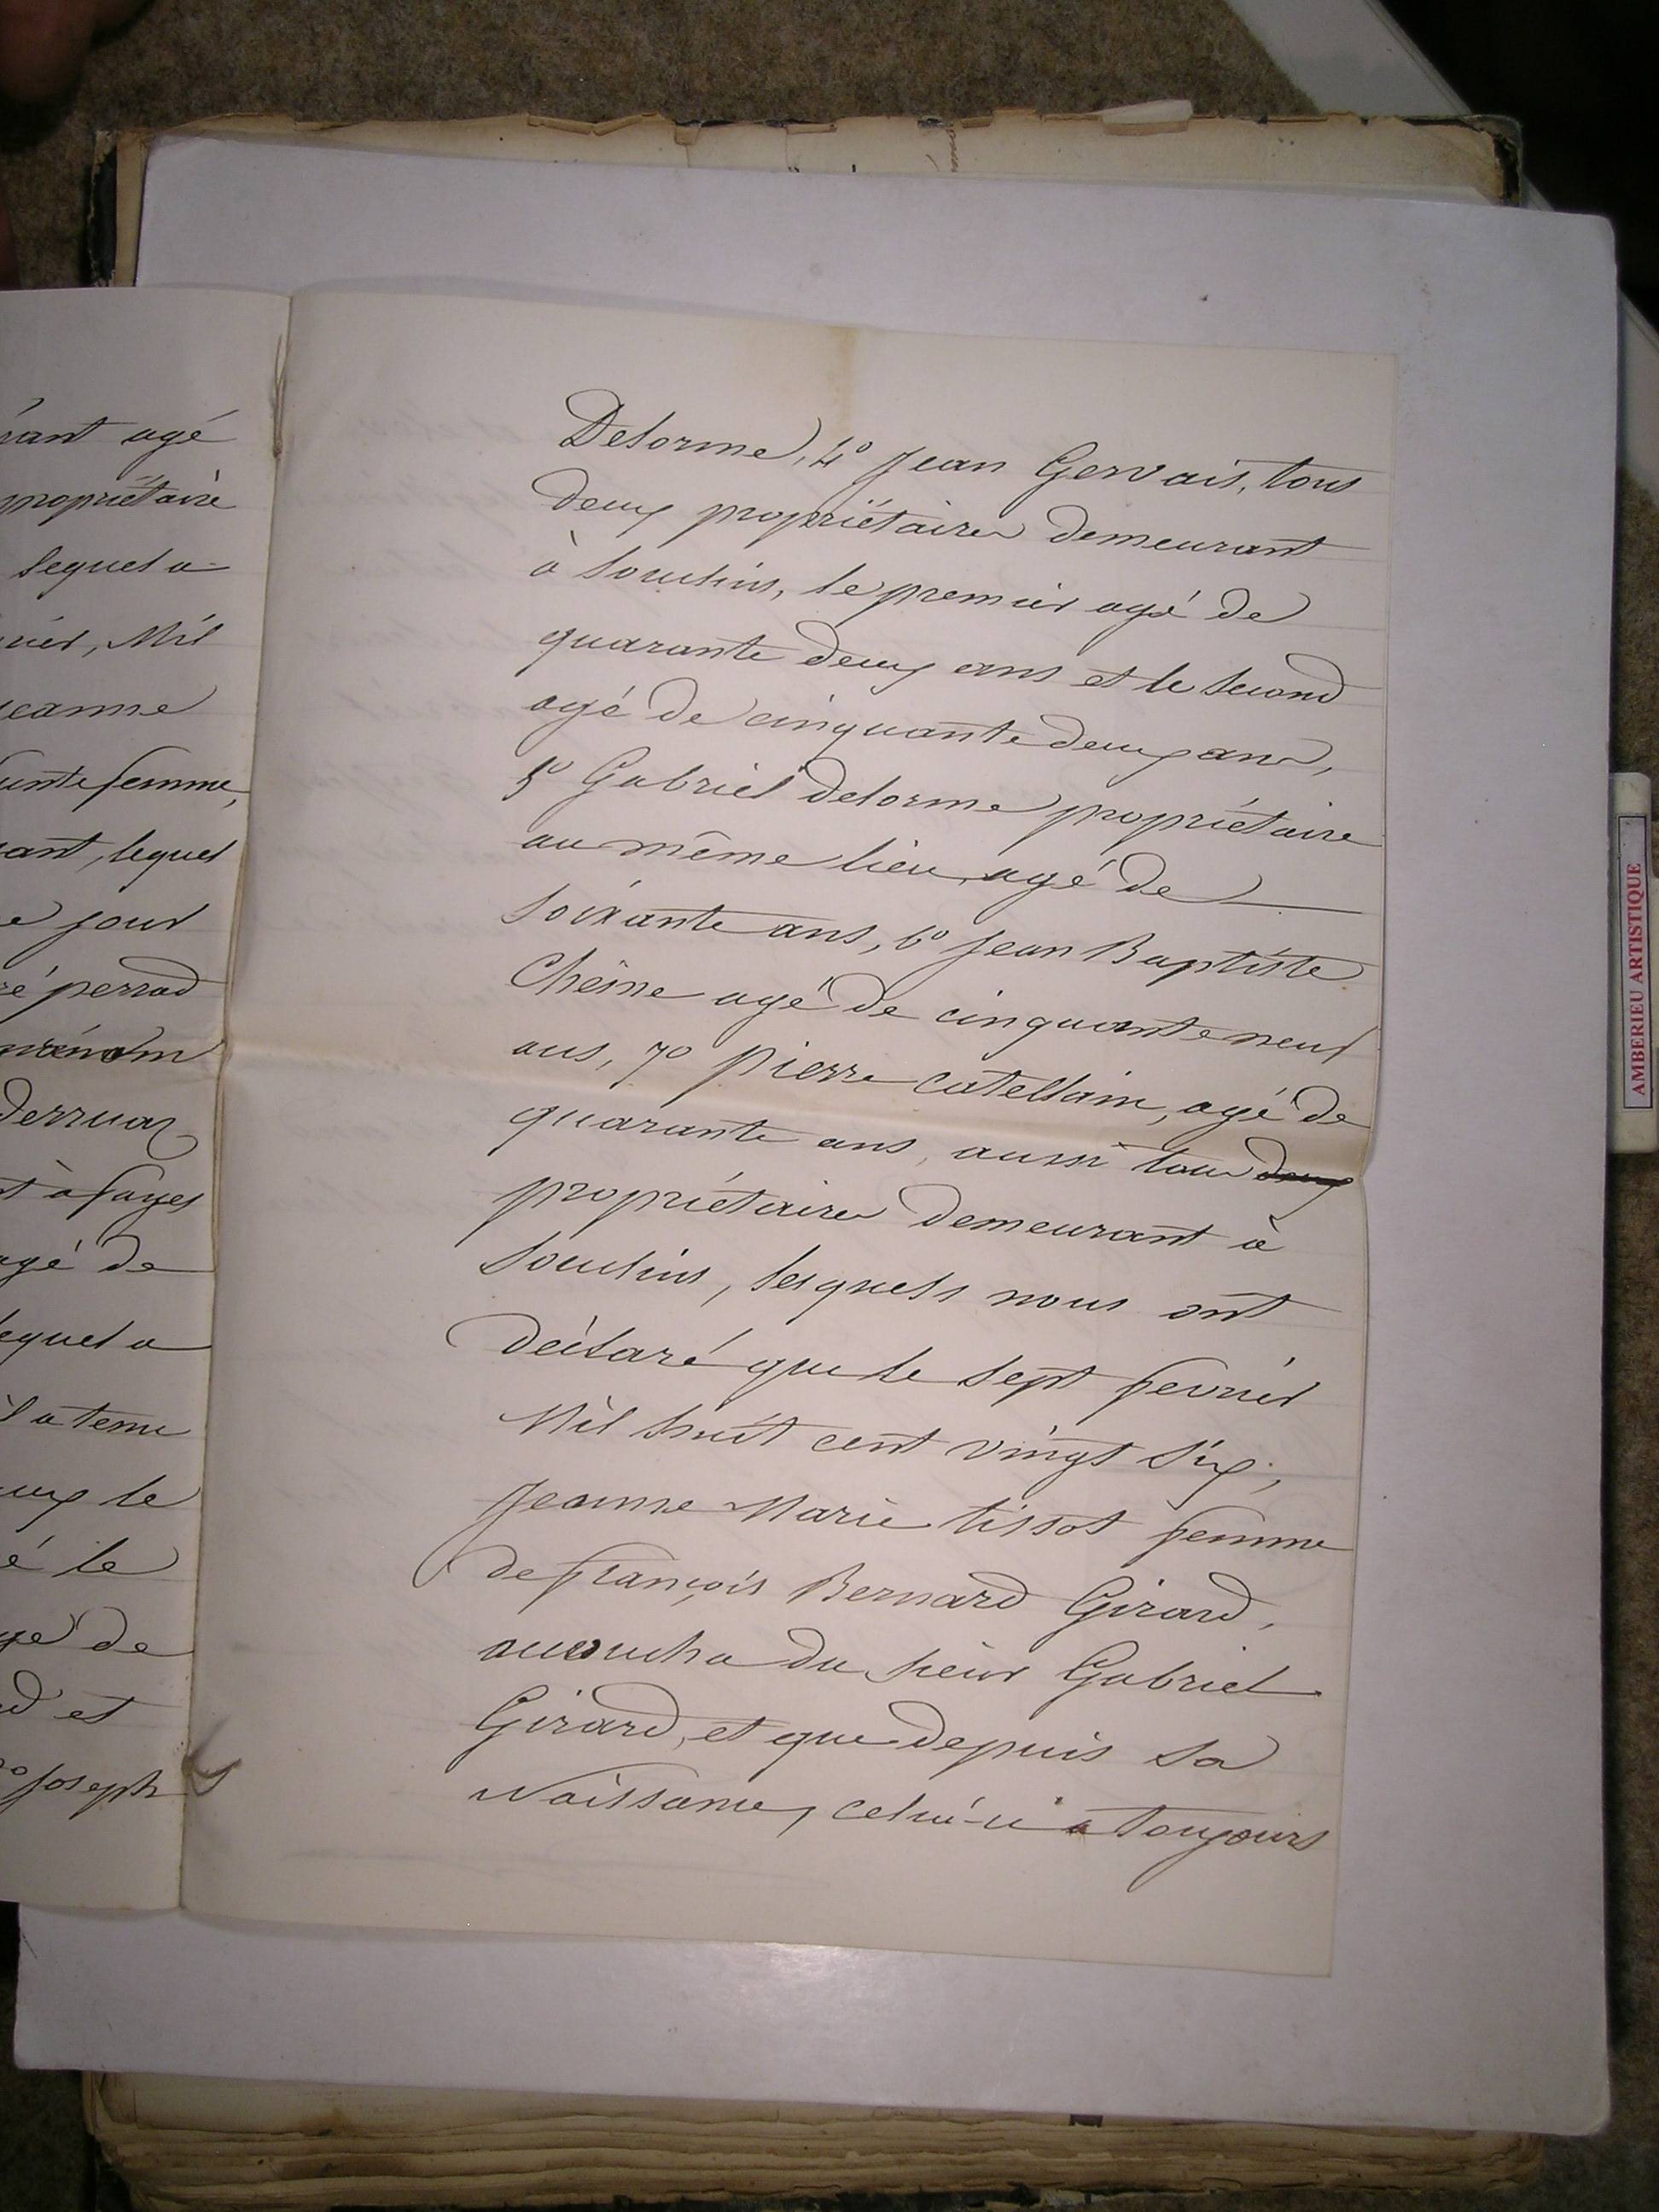 rant agé
propriétaire
lequel a
rier, Mil
eanne
unte femme,
ant, lequel
e jour
ré perrod
prénom
Derruaz
t à farges
agé de
lequel a
il a tenu
eux le
é le
gé de
d et
3º Joseph
Delorme, 4º Jean Gervais, tous
deux propriétaires demeurant
à Souclins, le premier agé de
quarante deux ans et le second
agé de cinquante deux ans,
5º Gabriel delorme propriétaire
au même lieu, agé de
soixante ans, 6º Jean Baptiste
Chêne agé de cinquante neuf
ans, 7º pierre catellain, agé de
quarante ans, aussi tous deux
propriétaires demeurant à
Souclins, lesquels nous ont
déclaré que le sept fevrier
Mil huit cent vingt six,
Jeanne Marie tissot femme
de françois Bernard Girard,
accoucha du sieur Gabriel
Girard, et que depuis sa
Naissance, celui-ci a toujours
AMBERIEU ARTISTIQUE